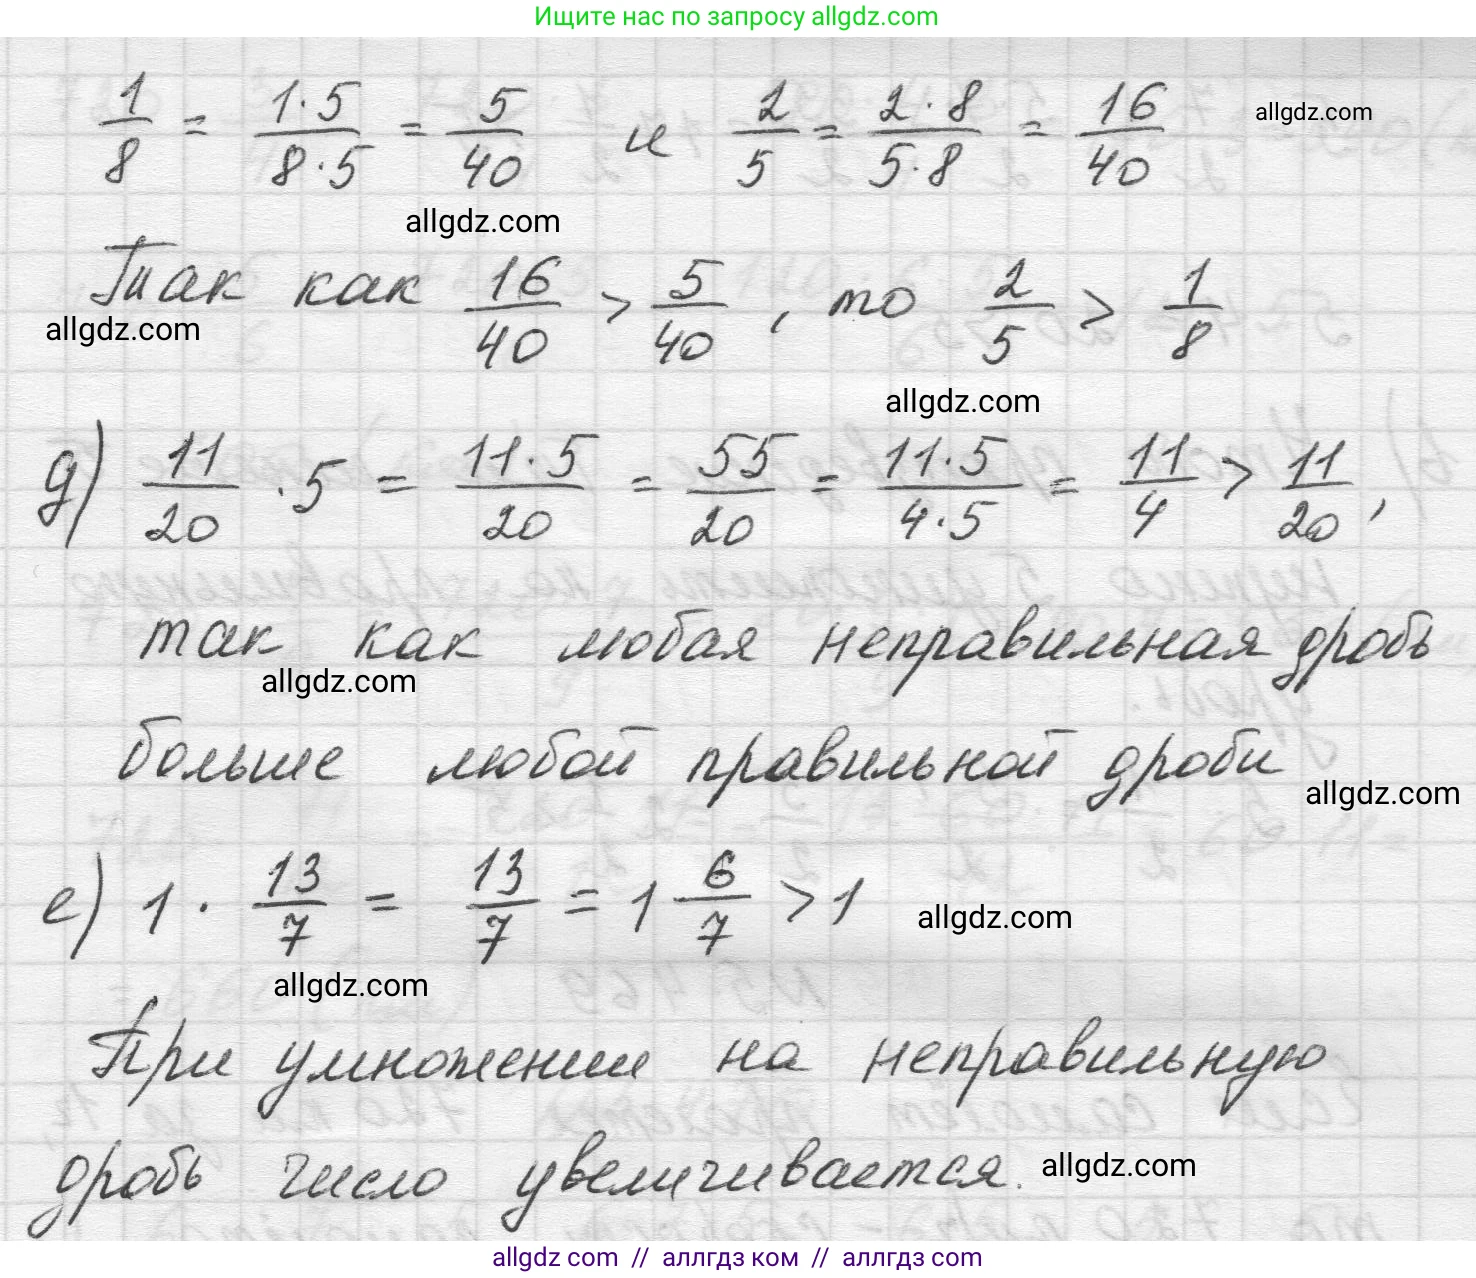 Ищите нас по запросу allgdz.com
1/8 = 1·5/8·5 = 5/40 и 2/5 = 2·8/5·8 = 16/40 allgdz.com
allgdz.com
Так как 16/40 > 5/40, то 2/5 > 1/8
allgdz.com
allgdz.com
д) 11/20 · 5 = 11·5/20 = 55/20 = 11·5/4·5 = 11/4 > 11/20,
так как любая неправильная дробь
allgdz.com
больше любой правильной дроби
allgdz.com
е) 1 · 13/7 = 13/7 = 1 6/7 > 1 allgdz.com
allgdz.com
При умножении на неправильную
дробь число увеличивается. allgdz.com
allgdz.com // аллгдз ком // аллгдз.com